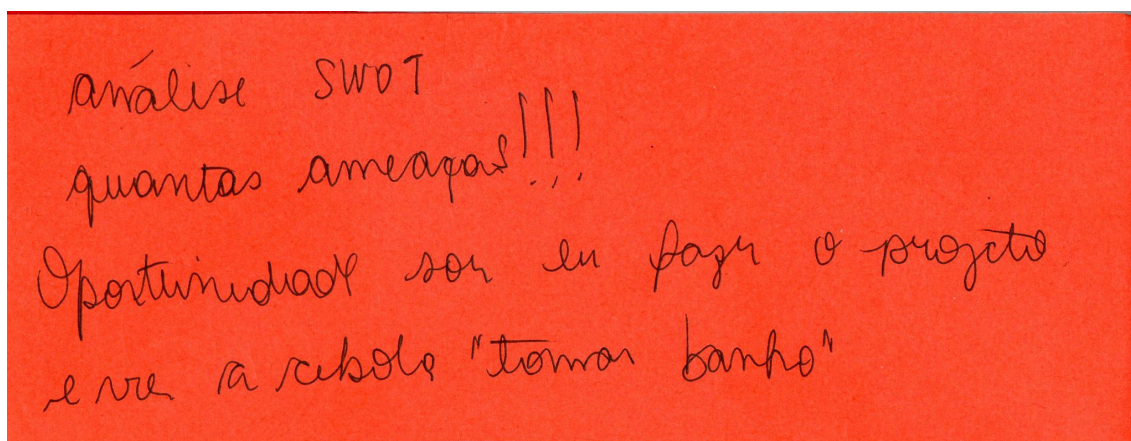 análise SWOT
quantas ameaças!!!
Oportunidade ser eu fazer o projeto
e ver a cebola "tomar banho"